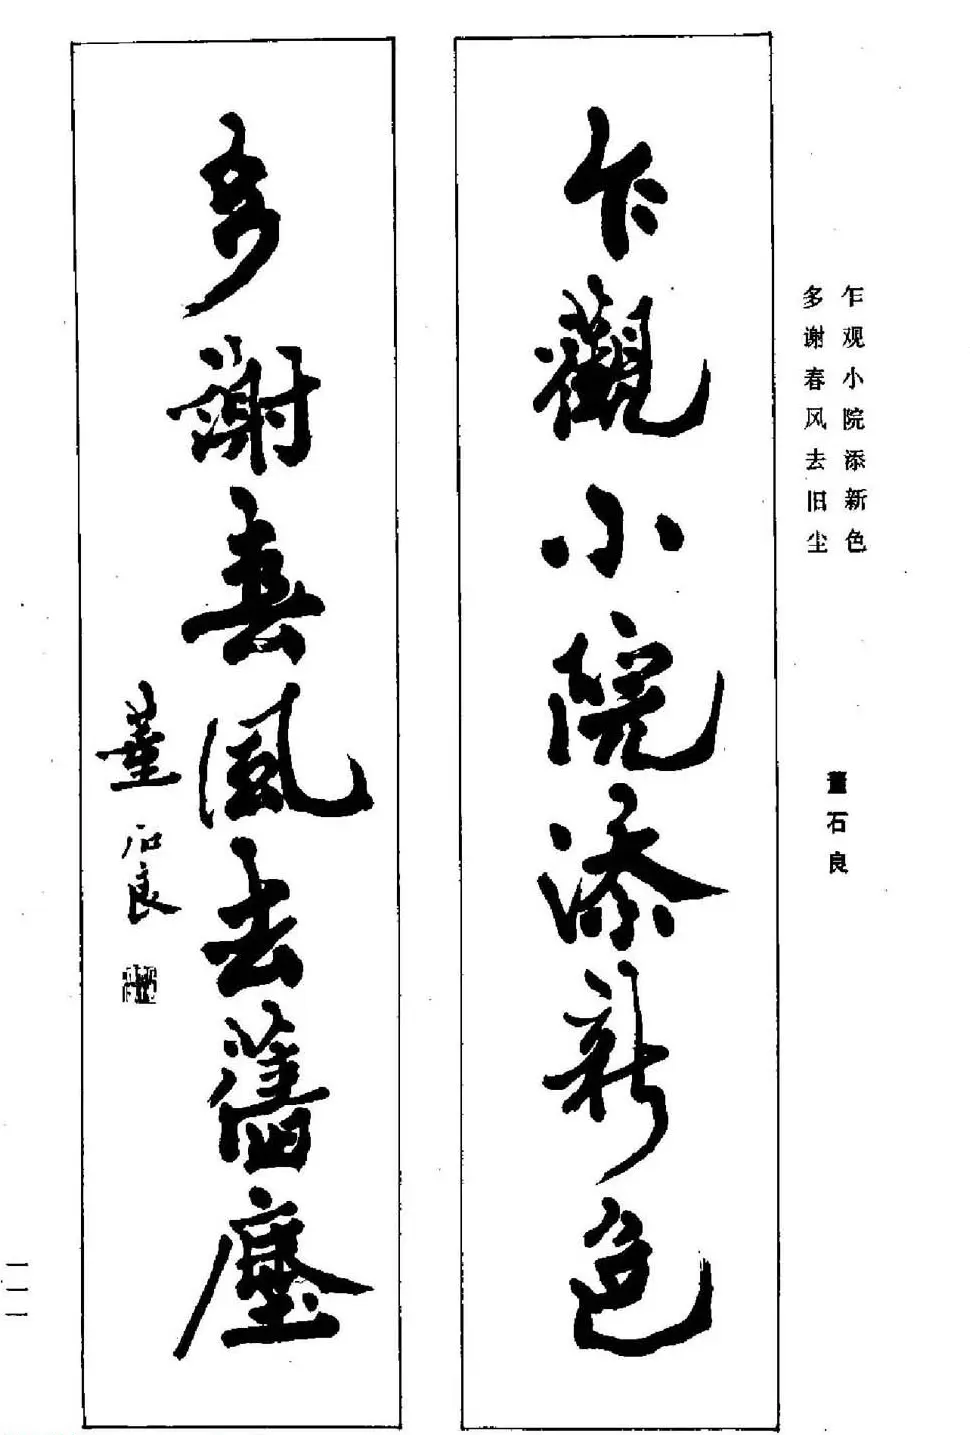 乍观小院添新色
多谢春风去旧尘
董石良
乍觀小院添新色
多謝春風去舊塵
董石良
一一一